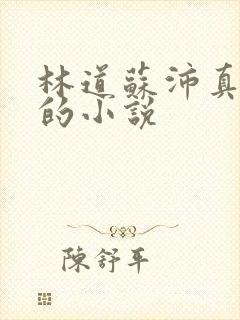 林道蘇沛真
的小說
陳舒平